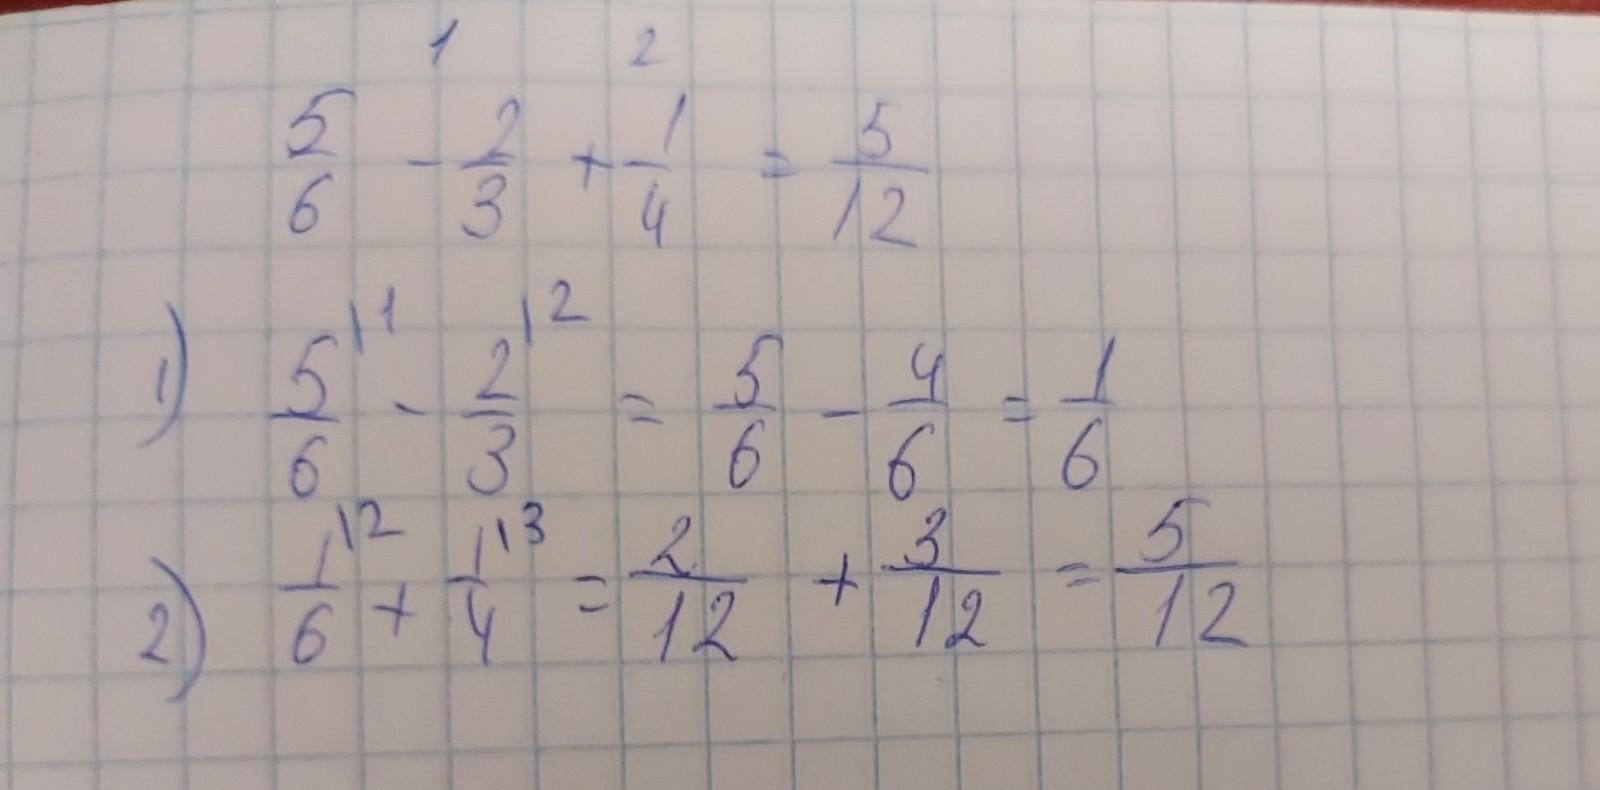 1 2
5/6 - 2/3 + 1/4 = 5/12
1) 5/6 |1 - 2/3 |2 = 5/6 - 4/6 = 1/6
2) 1/6 |2 + 1/4 |3 = 2/12 + 3/12 = 5/12